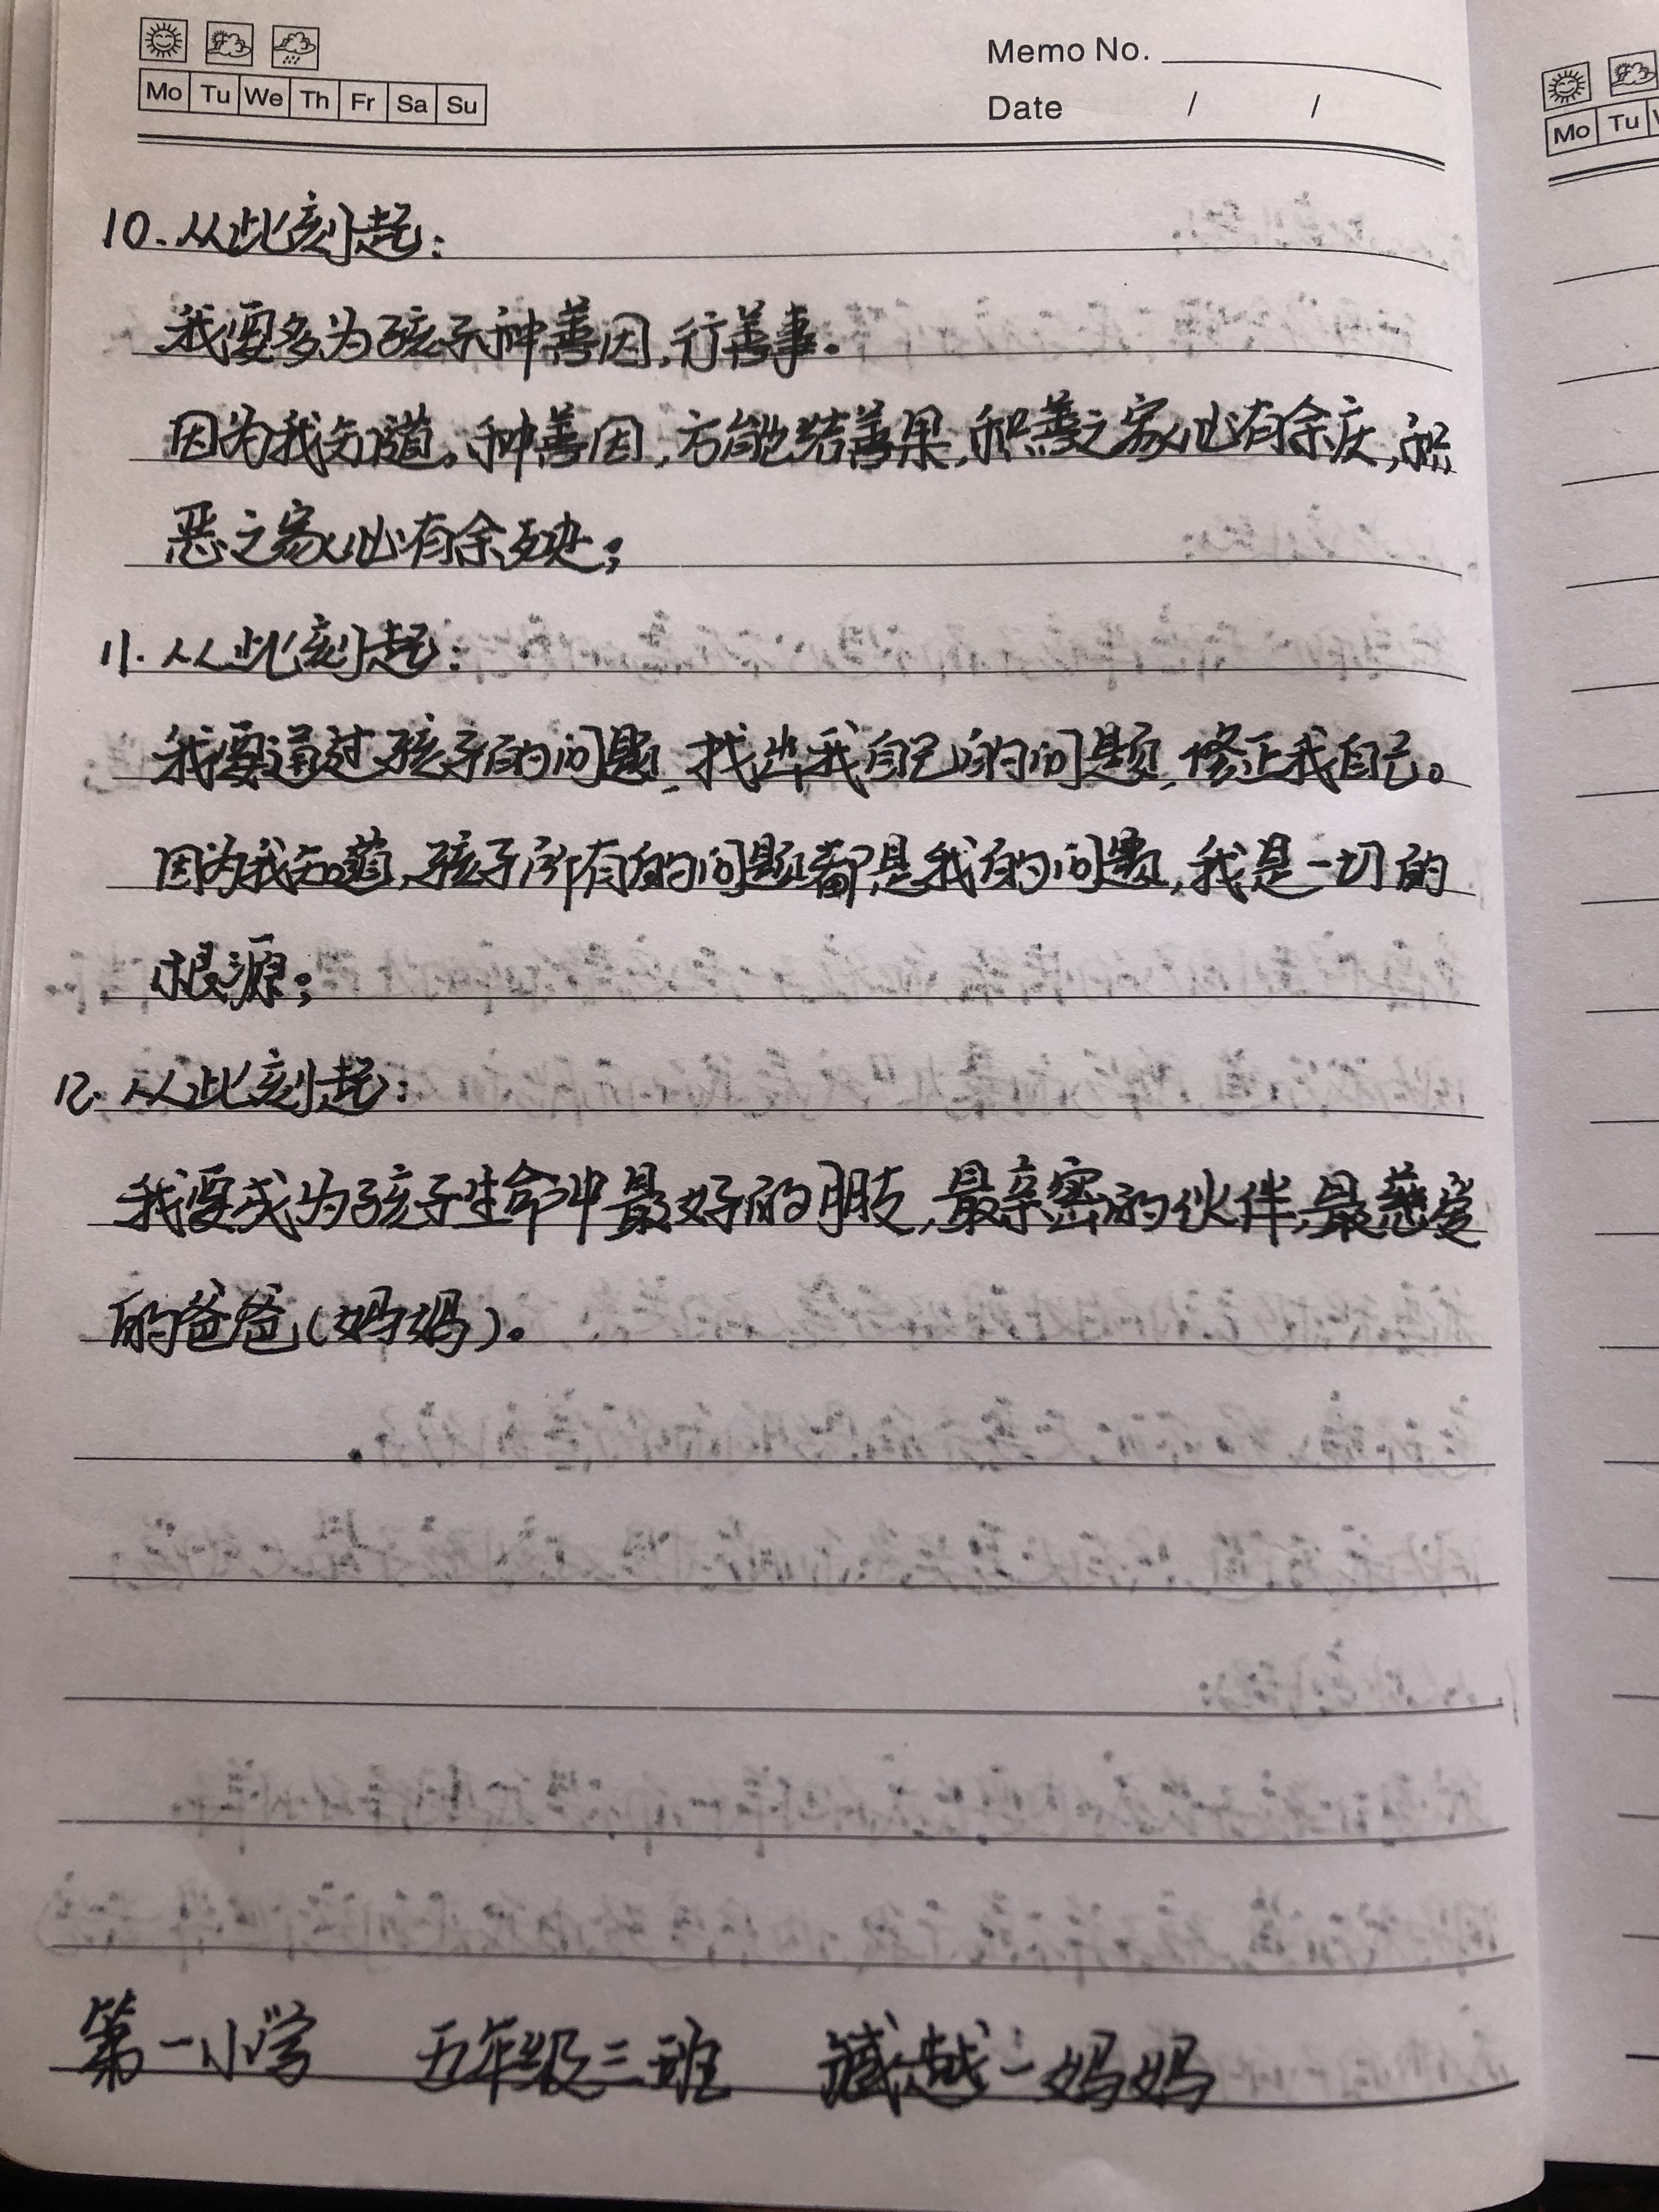 Memo No.
Mo Tu We Th Fr Sa Su
Date / /
Mo Tu
10.从此刻起:
我要多为孩子种善因,行善事.
因为我知道。种善因,方能结善果,积善之家必有余庆,积
恶之家必有余殃;
11.从此刻起:
我要通过孩子的问题,找出我自己的问题,修正我自己。
因为我知道,孩子所有的问题都是我的问题,我是一切的
根源;
12.从此刻起:
我要成为孩子生命中最好的朋友,最亲密的伙伴,最慈爱
的爸爸(妈妈)。
第一小学 五年级三班 臧越一妈妈